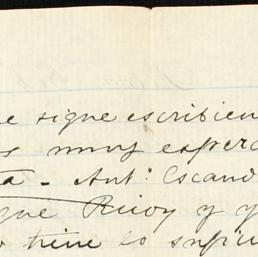 e sigue escribien
s muy espera
a - Ant: Escand
que Rivoy y y
o tiene lo sufici